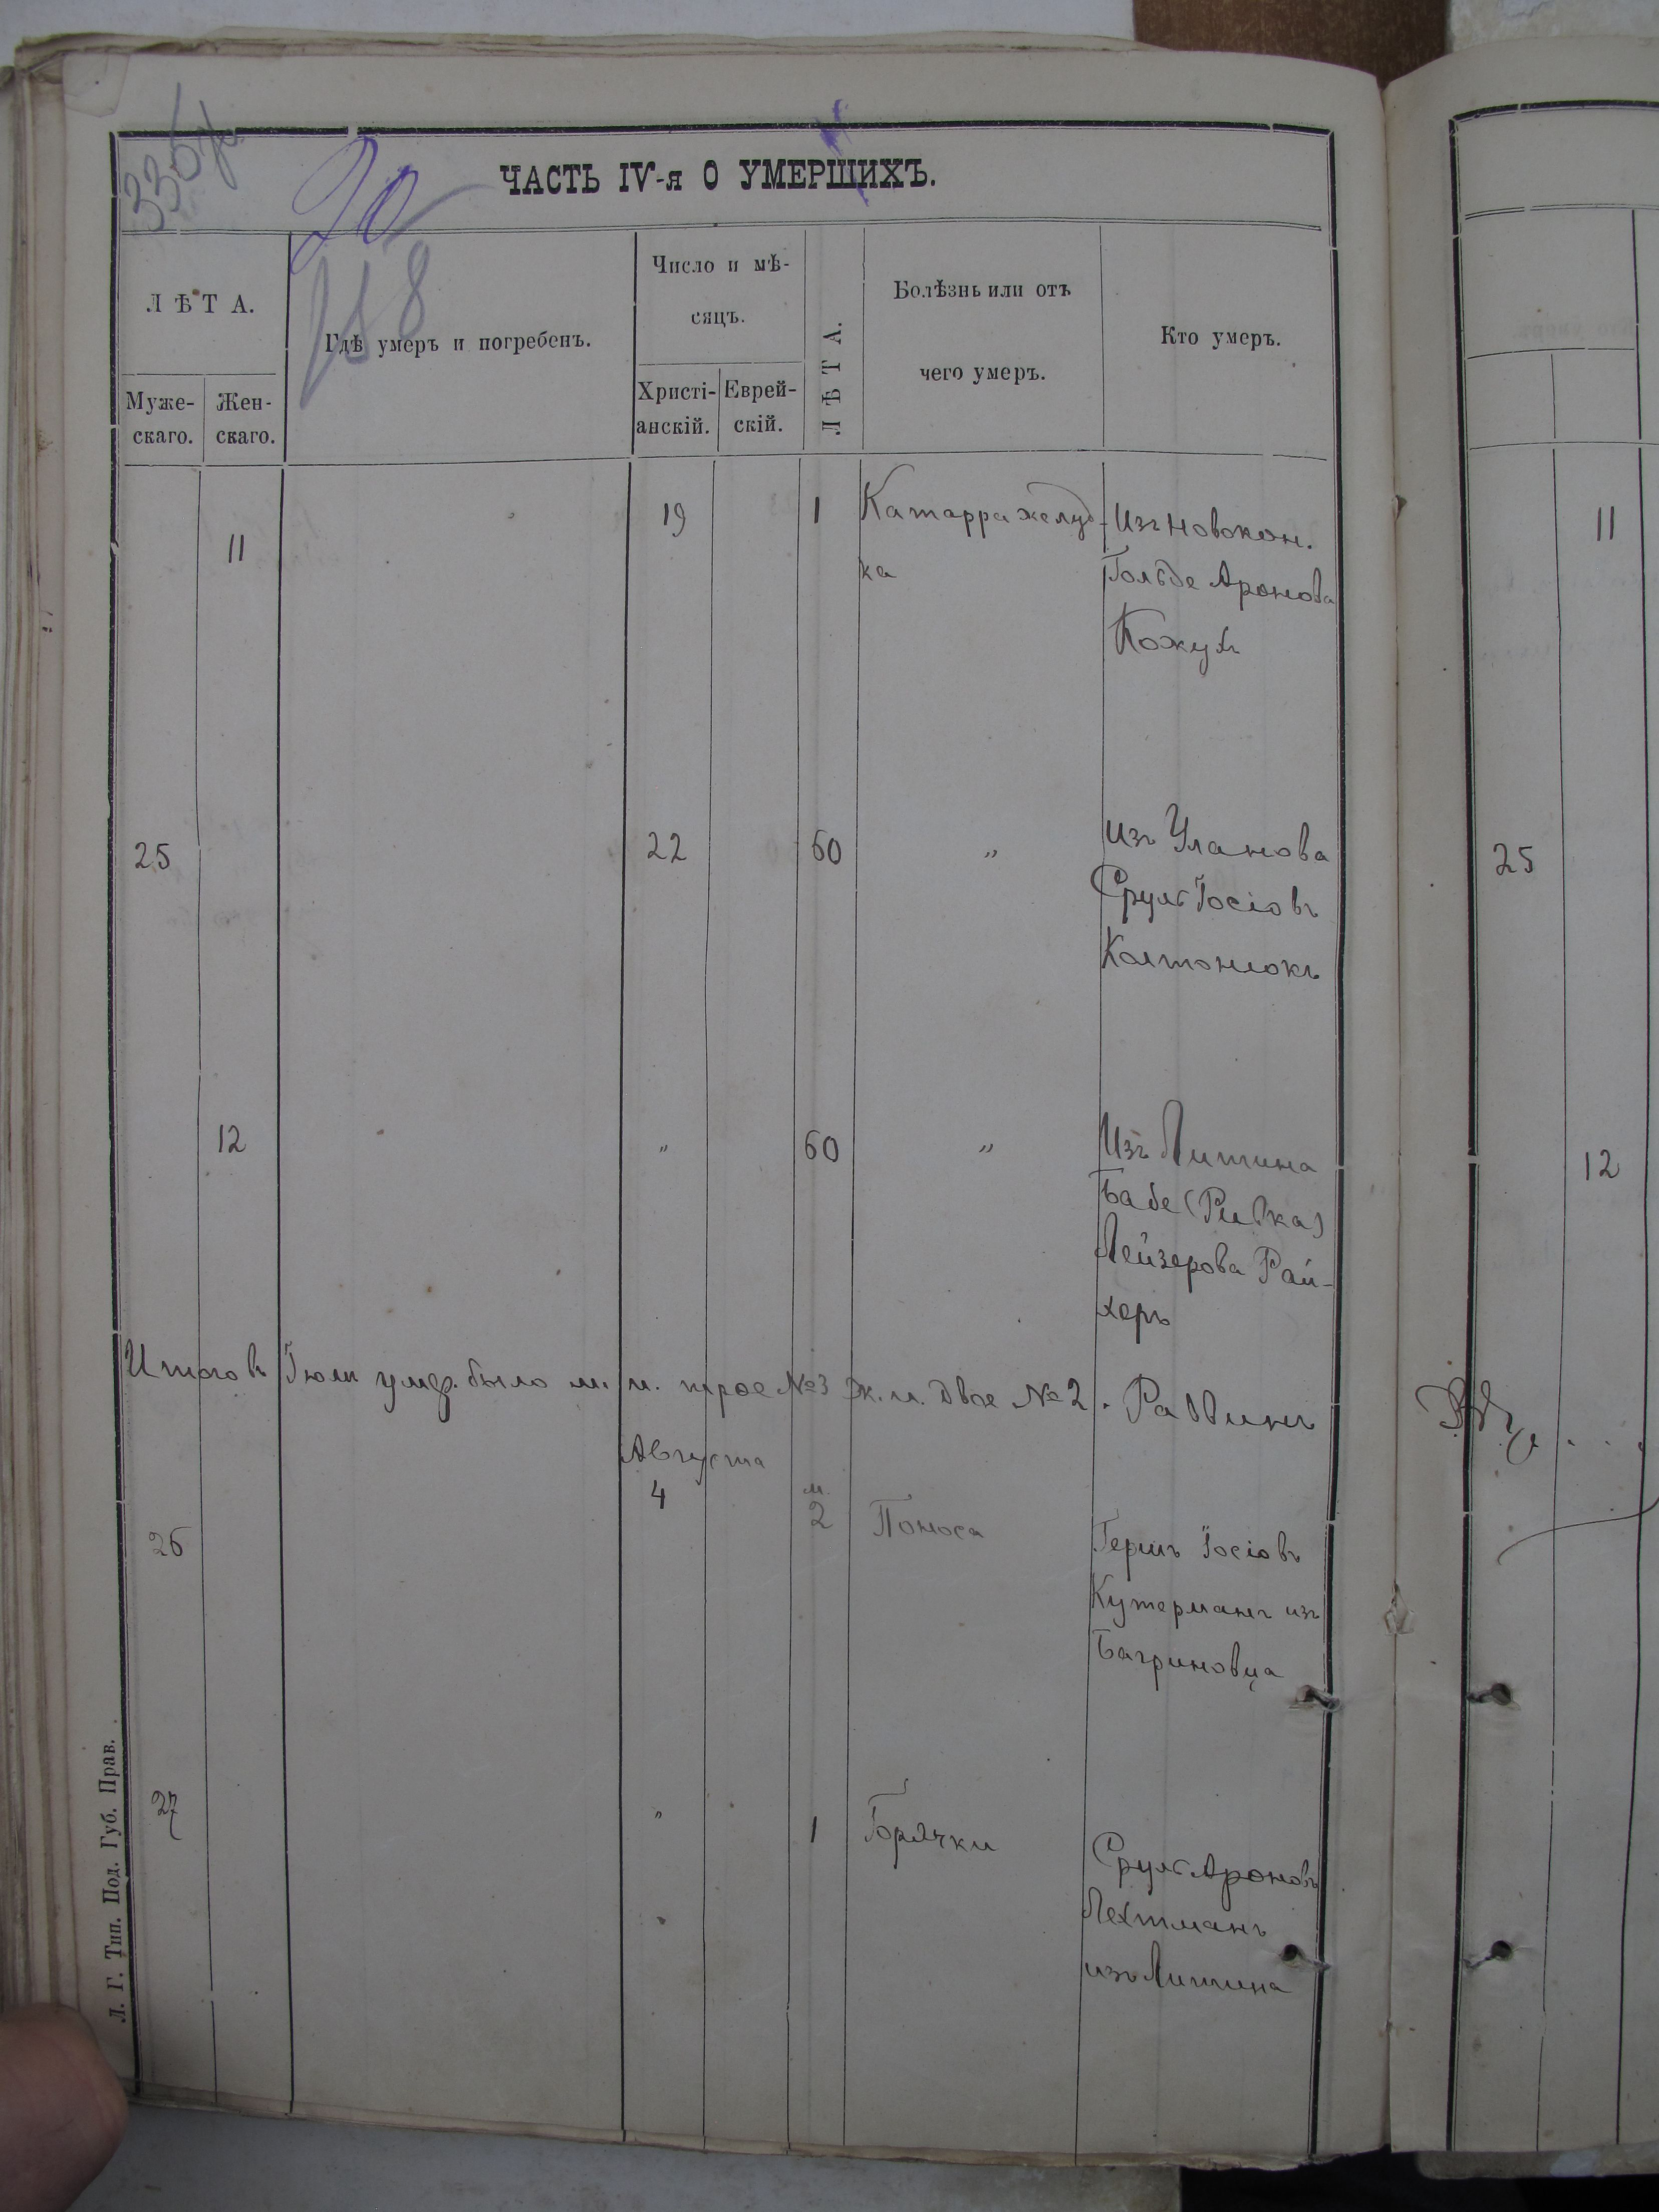 ЧАСТЬ IV-я О УМЕРШИХЪ.
336
20
158
ЛѢТА.
Муже-
скаго.
Жен-
скаго.
Гдѣ умеръ и погребенъ.
Число и мѣ-
сяцъ.
Христі-
анскій.
Еврей-
скій.
ЛѢТА.
Болѣзнь или отъ
чего умеръ.
Кто умеръ.
11 19 1 Катарра желуд- Изъ Новокон.
ка Гольде Аронова
Кожухъ
25 22 60 " Изъ Уланова
Сруль Іосіовъ
Колтонюкъ
12 " 60 " Изъ Литина
Бабе (Ривка)
Лейзерова Рай-
херъ
Итого въ Іюли умер. было м. п. трое №3 ж. п. двое №2. Раввинъ
Августа
26 4 м. 2 Поноса Гершъ Іосіовъ
Кутерманъ изъ
Багриновца
27 " 1 Горячки Сруль Ароновъ
Лехтманъ
изъ Литина
Л. Г. Тип. Под. Губ. Прав.
11
25
12